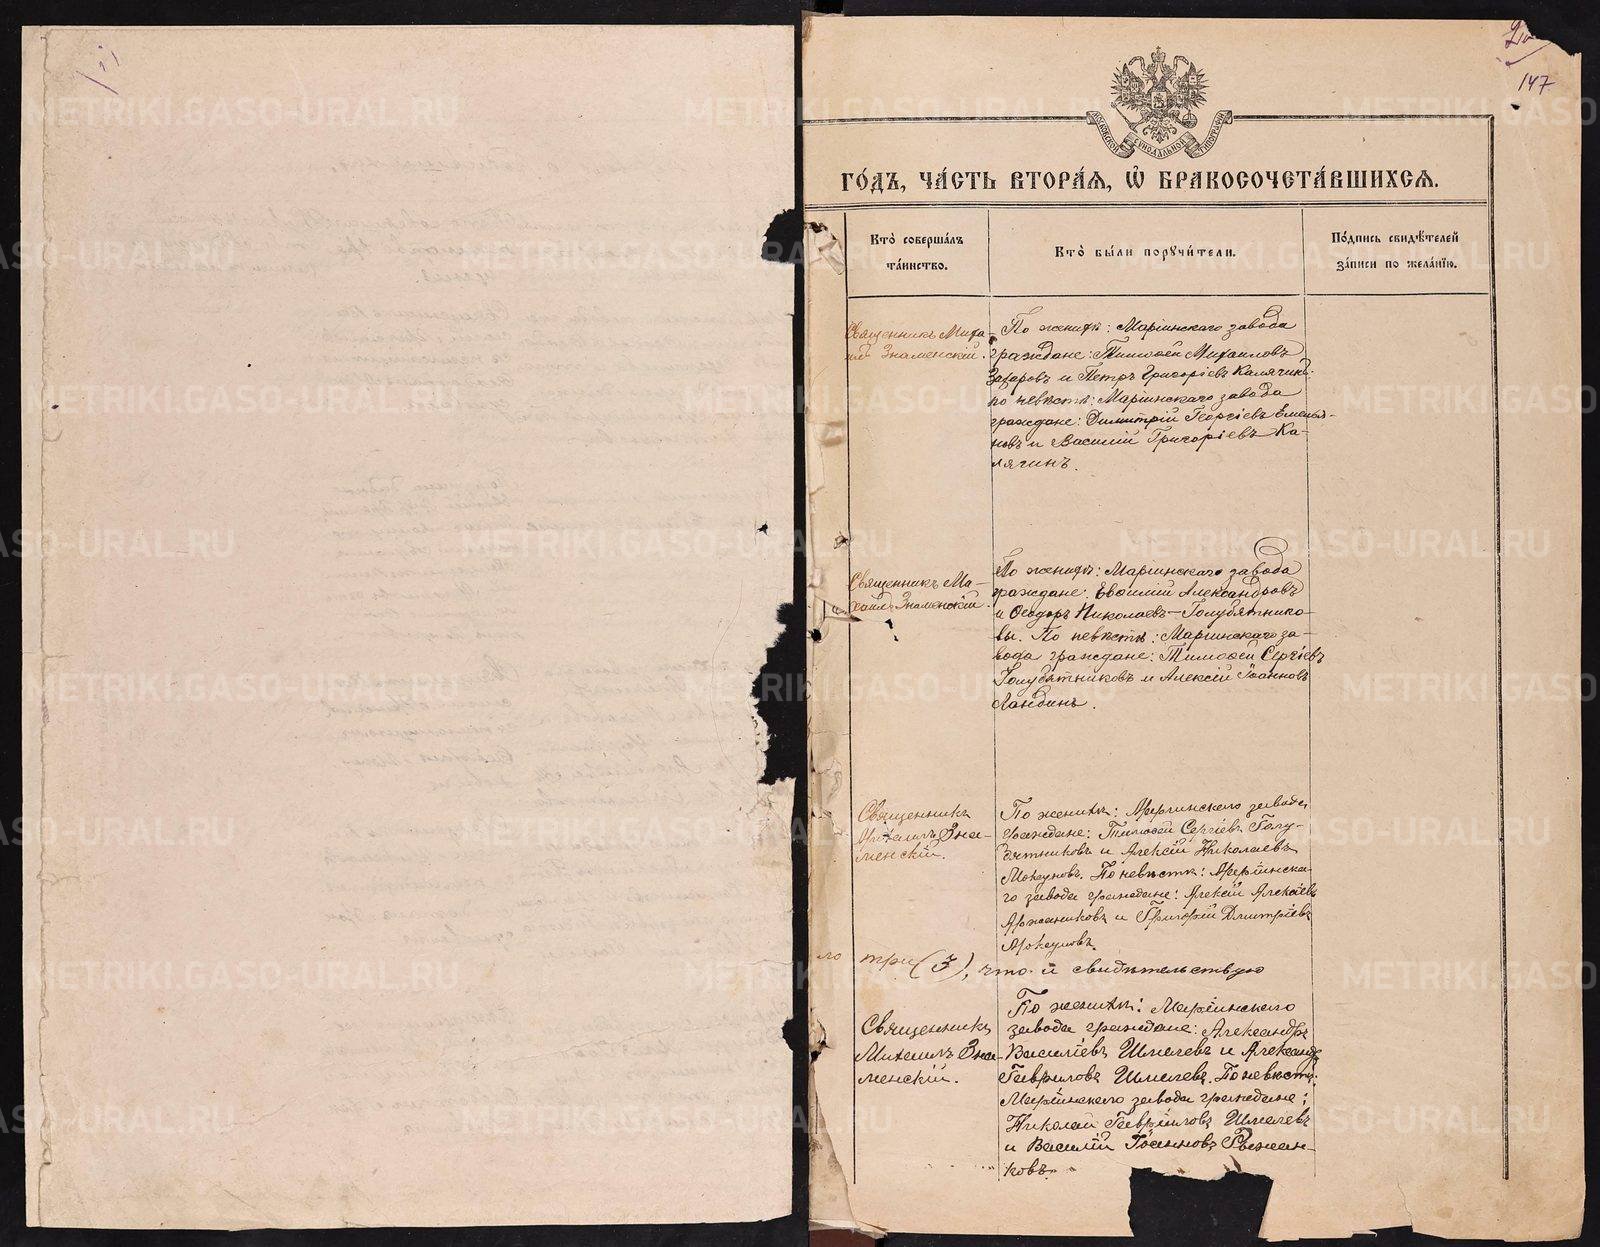 147
МОСКОВСКОЙ СѴНОДАЛЬНОЙ ТИПОГРАФІИ
ГО́ДЪ, ЧА́СТЬ ВТОРА́Ѧ, Ѡ҆ БРАКОСОЧЕТА́ВШИХСѦ.
Кто̀ соверша́лъ
та́инство.
Кто̀ бы́ли порꙋчи́тели.
По́дпись свидѣ́телей
за́писи по жела́нїю.
Священникъ Миха-
илъ Знаменскій.
По женихѣ: Маріинскаго завода
граждане: Тимоѳей Михаиловъ
Захаровъ и Петръ Григоріевъ Калягинъ.
по невѣстѣ: Маріинскаго завода
граждане: Димитрій Георгіевъ Емелья-
новъ и Василій Григоріевъ Ка-
лягинъ.
Священникъ Ми-
хаилъ Знаменскій.
По женихѣ: Маріинскаго завода
граждане: Евѳимій Александровъ
и Ѳеодоръ Николаевъ – Голубятнико-
вы. По невѣстѣ: Маріинскаго за-
вода граждане: Тимоѳей Сергіевъ
Голубятниковъ и Алексій Іоанновъ
Ландинъ.
Священникъ
Михаилъ Зна-
менскій.
По женихѣ: Маріинскаго завода
граждане: Тимоѳей Сергіевъ Голу-
бятниковъ и Алексій Николаевъ
По невѣстѣ: Маріинска-
го завода граждане: Алексій Алексіевъ
Аржанниковъ и Григорій Дмитріевъ
ло три (3), что и свидѣтельствую
Священникъ
Михаилъ Зна-
менскій.
По женихѣ: Маріинскаго
завода граждане: Александръ
Василіевъ Шмелевъ и Александръ
Гавриловъ Шмелевъ. По невѣстѣ:
Маріинскаго завода граждане:
Николай Гавріиловъ Шмелевъ
и Василій Іоанновъ
ковъ.
METRIKI.GASO-URAL.RU